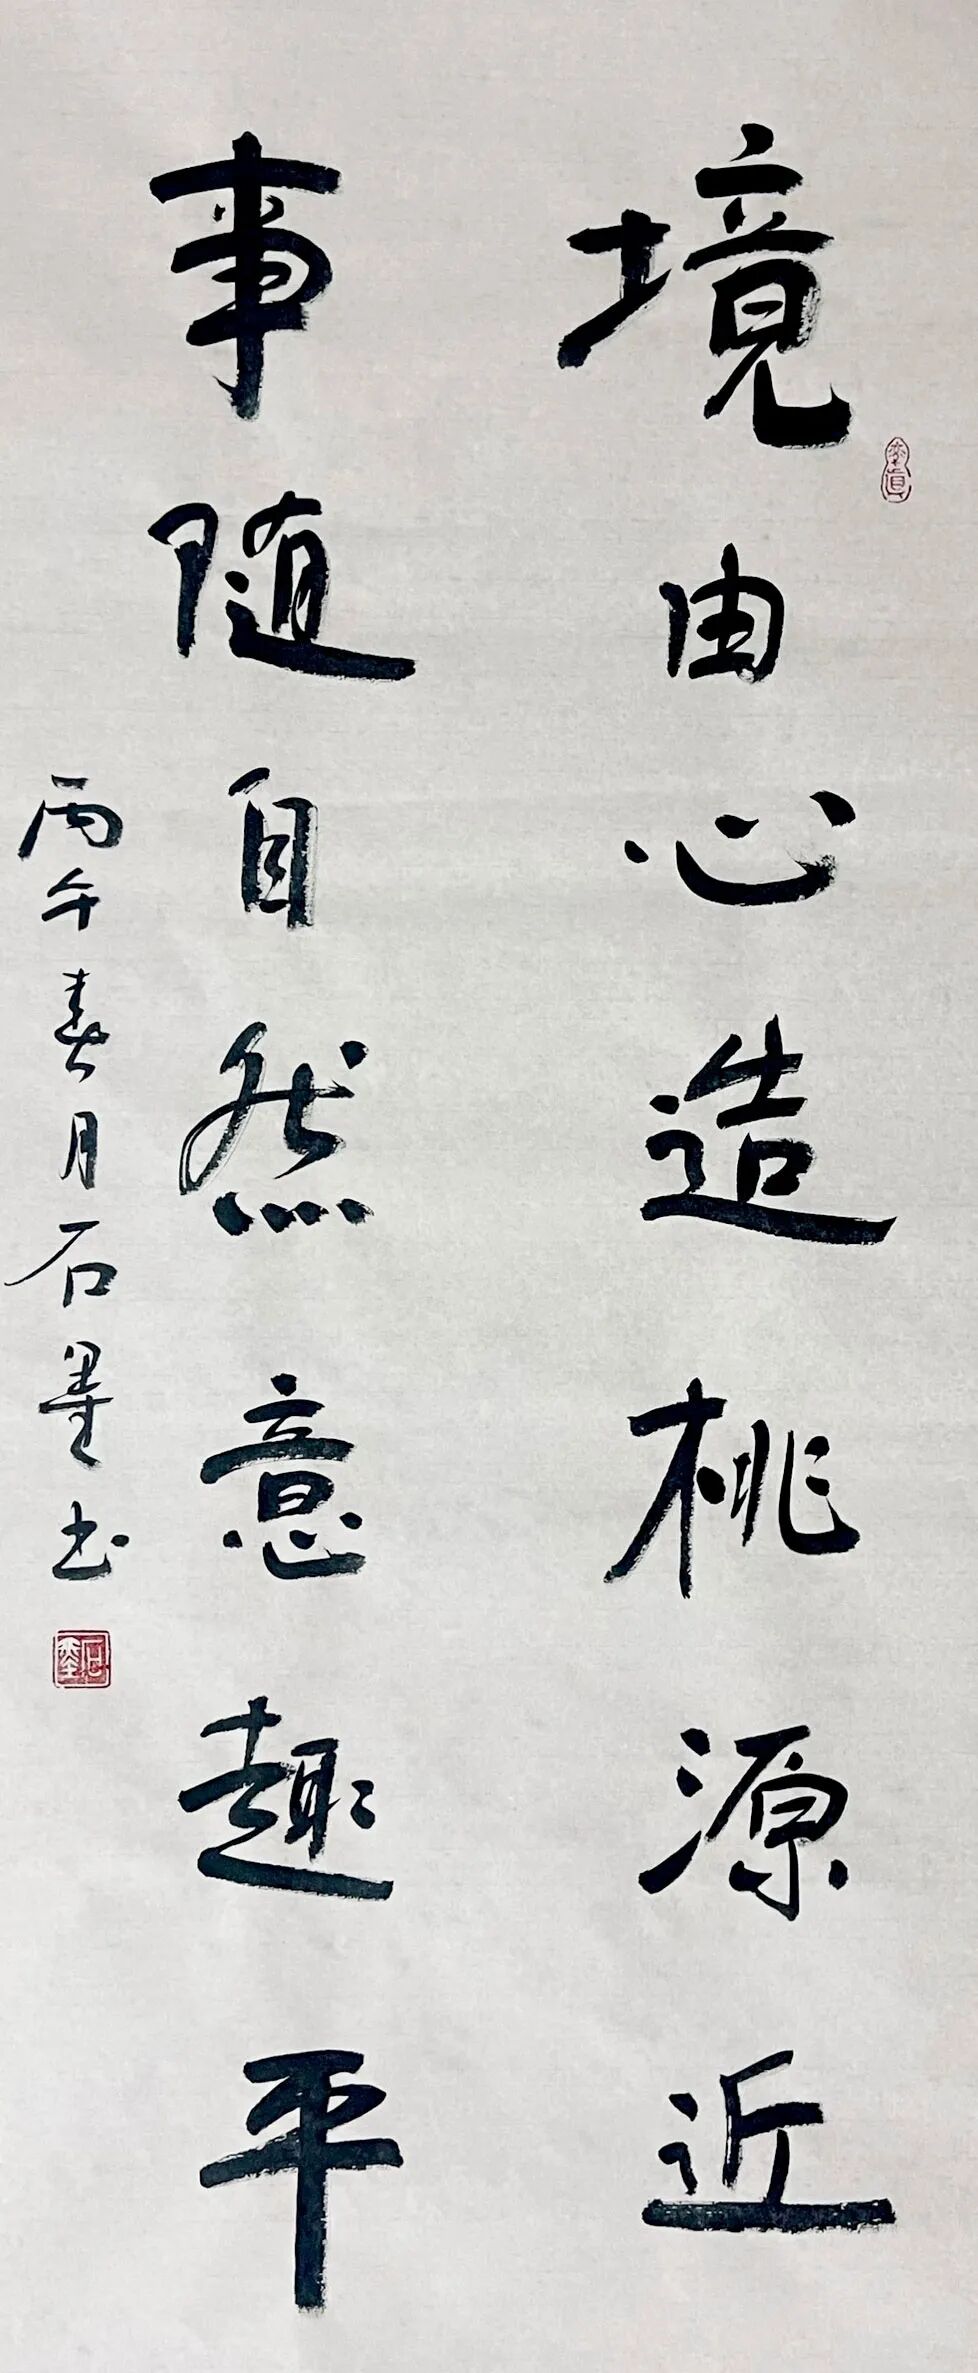 境由心造桃源近
事随自然意趣平
丙午春月石墨书